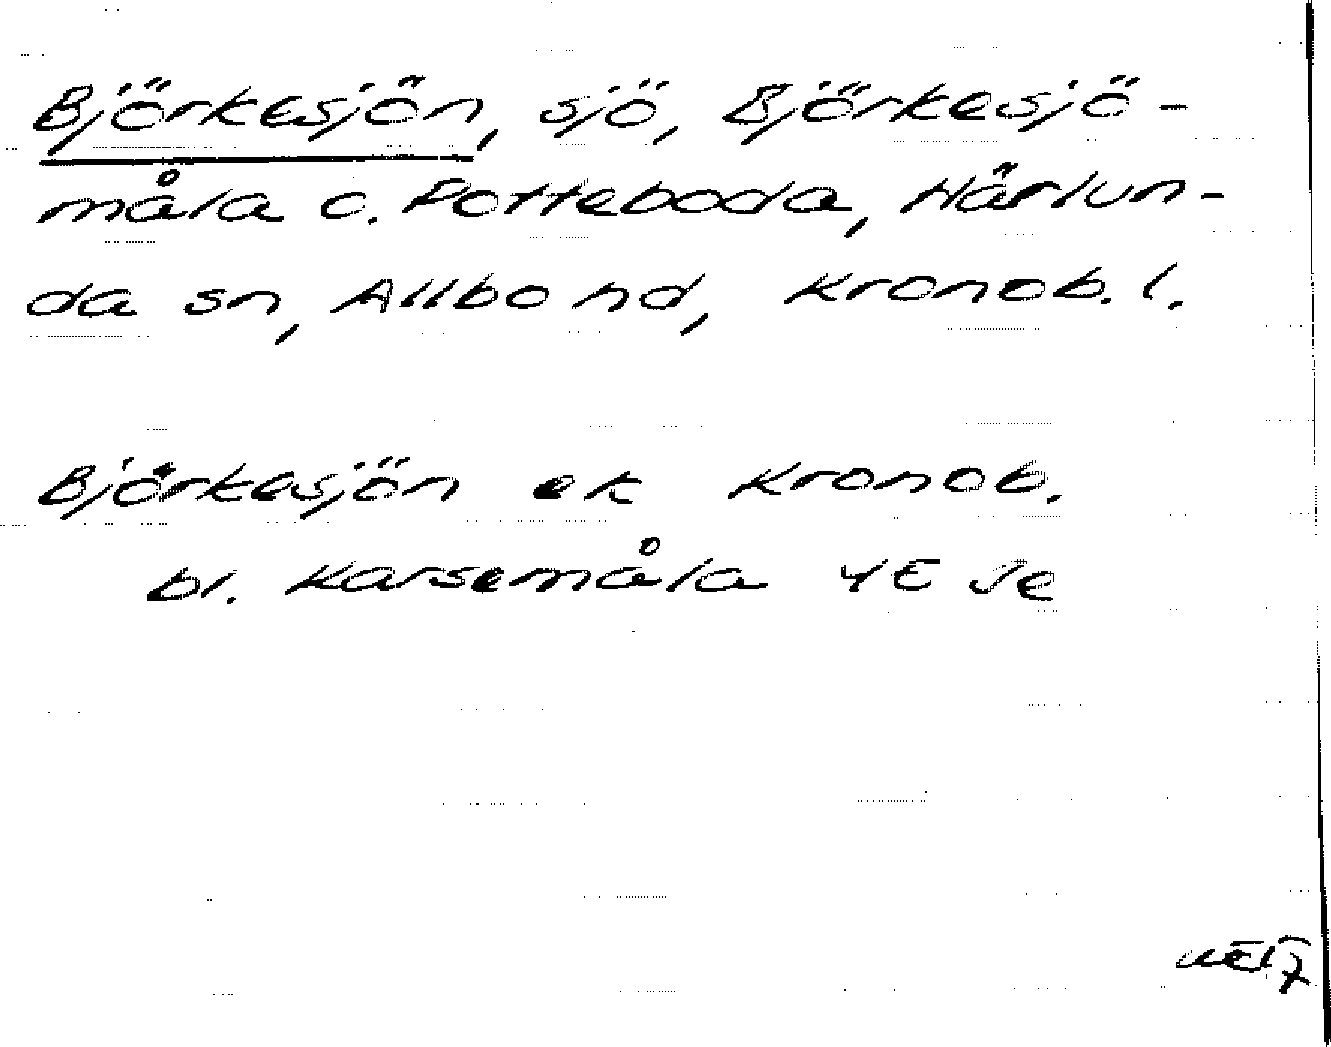 Björkesjön, sjö, Björkesjö-
måla o. Potteboda, Härlun-
da sn, Allbo hd, Kronob. l.
Björkesjön ek Kronob.
bl. Karsemåla 4E